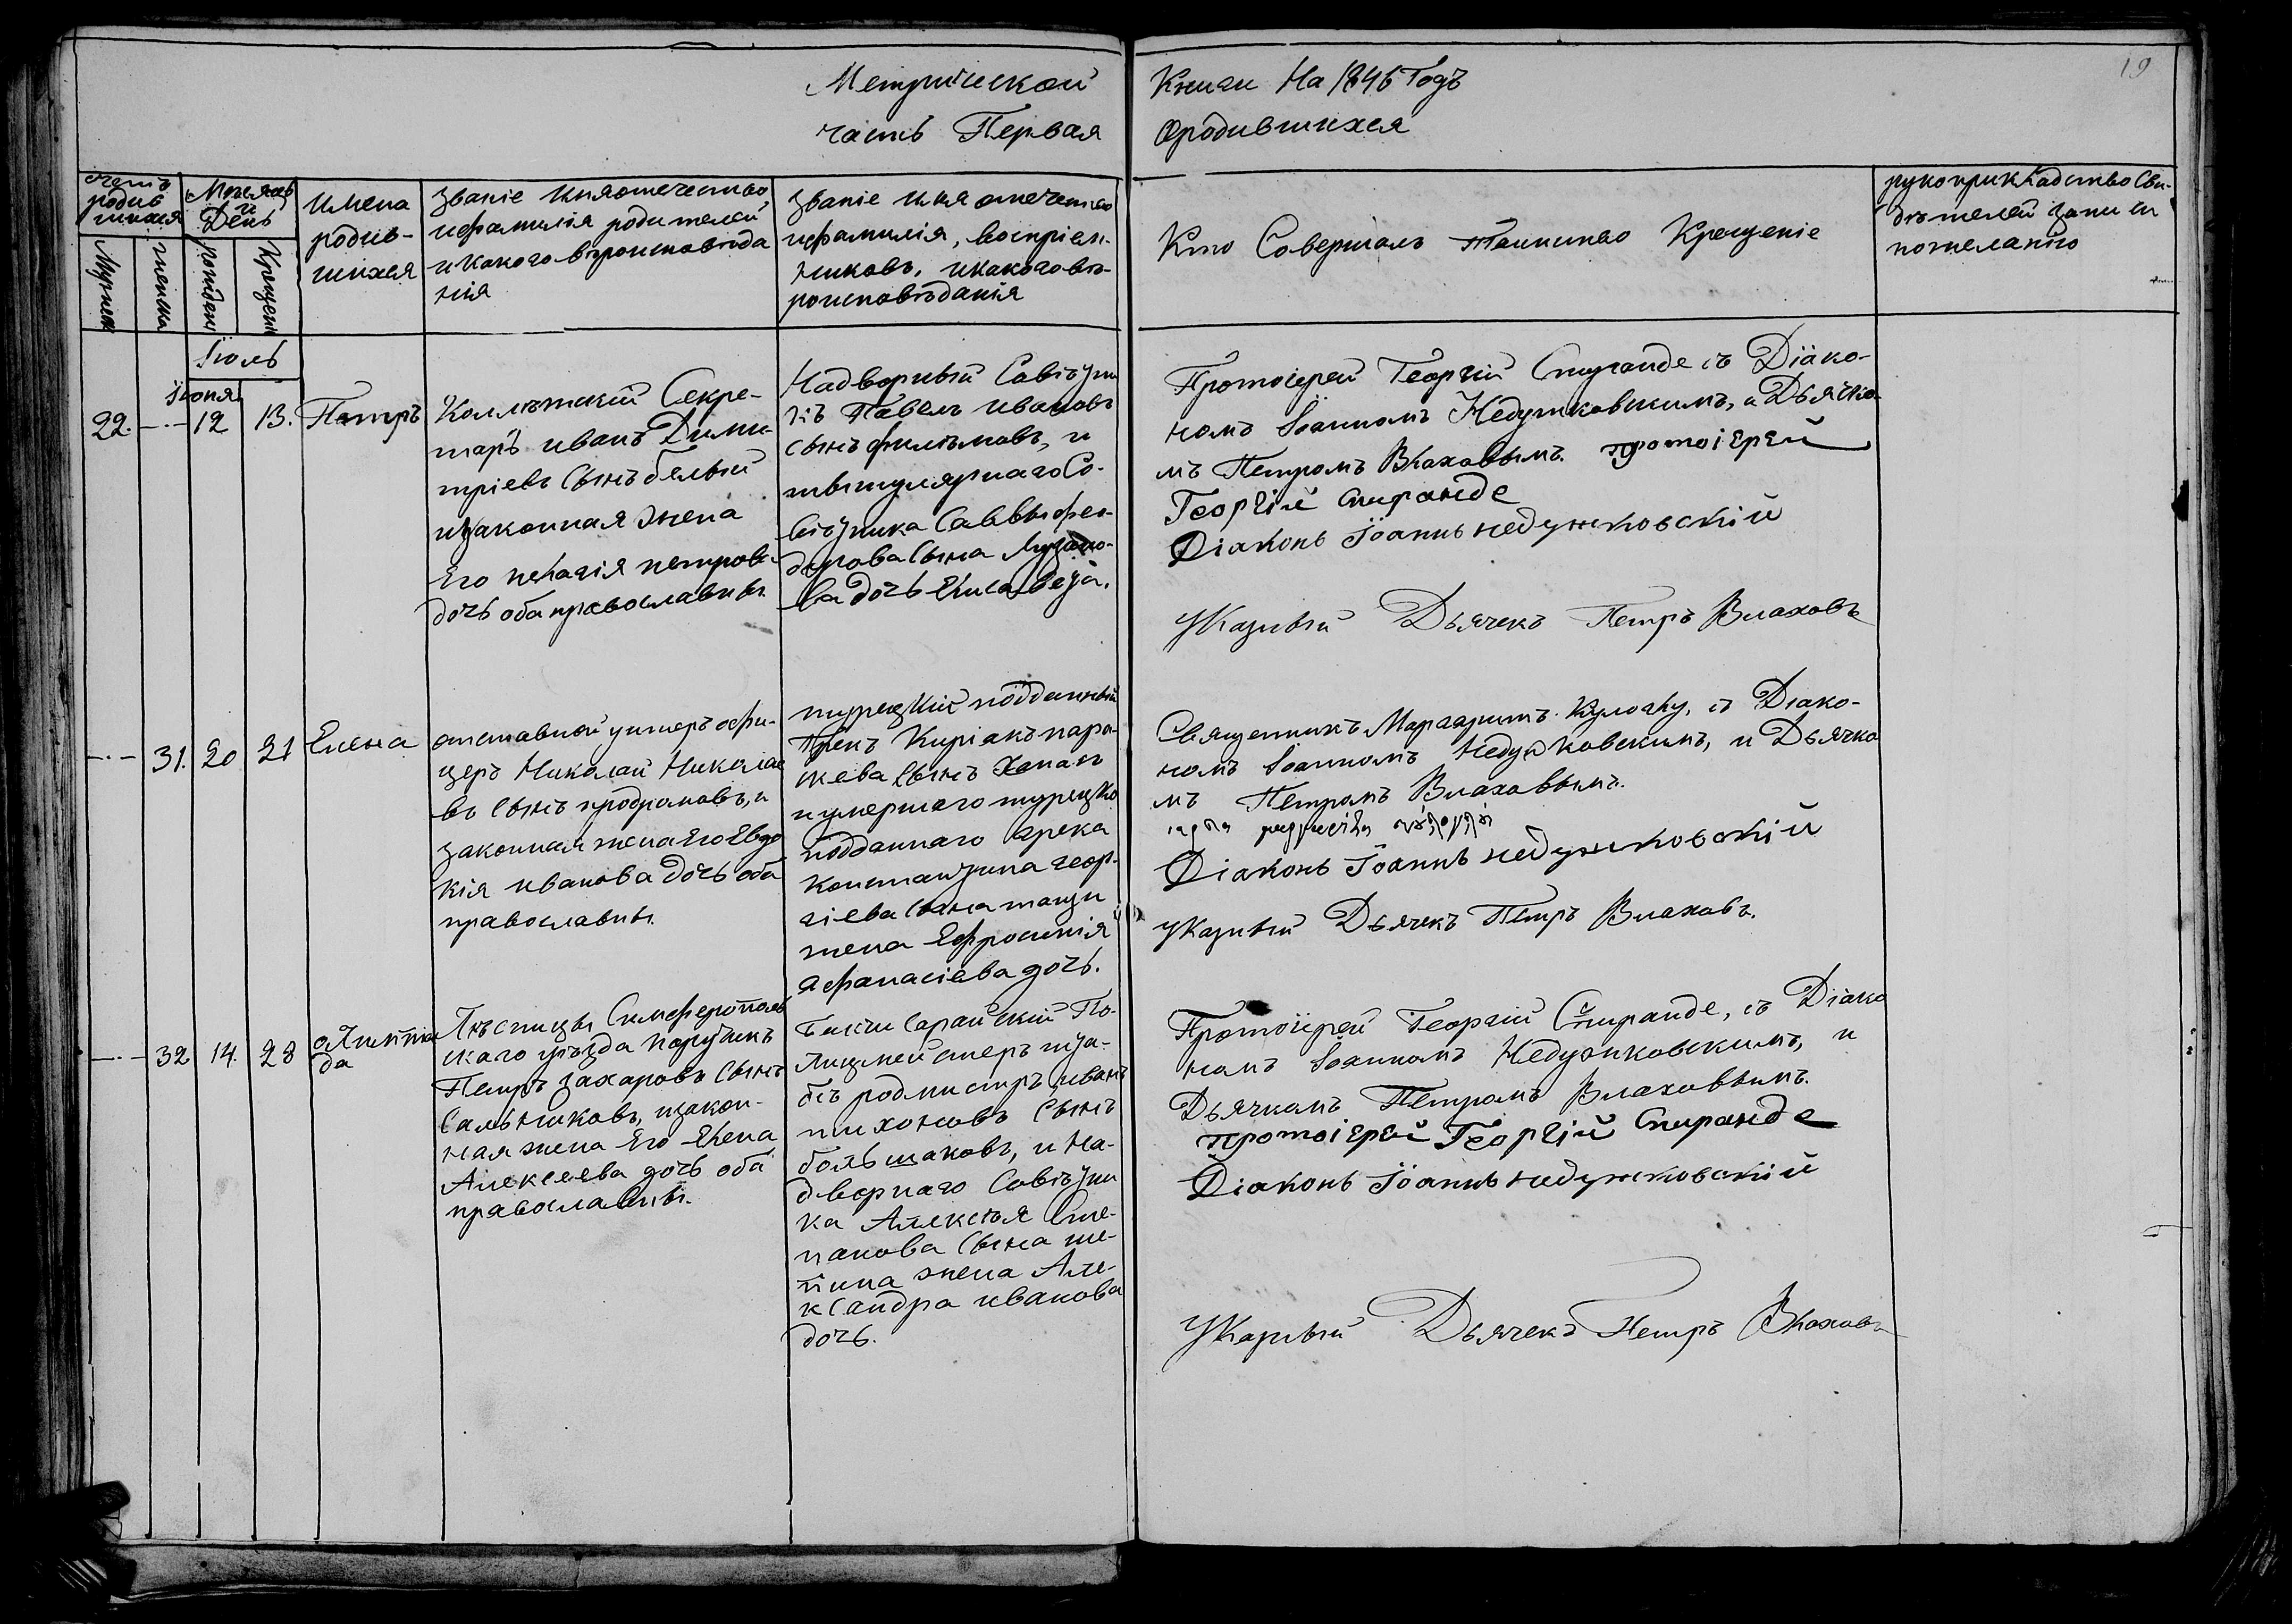 Метрической Книги На 1846 Годъ
19
часть Первая Ородившихся
счетъ родившихся
Мужеска
женска
Месяцъ и День
рожден
Крещен
имена родив-
шихся
званіе имяотечество
ифамилія родителей
икакого вѣроисповѣда
нія
званіе имя отечество
ифамилія, воспріем-
никовъ, икакоговѣ-
роисповѣданія
Кто Совершалъ Таинство Крещеніе
рукоприкладство Сви-
дѣтелей записи
пожеланію
Іюль
Іюня
22. -·- 12 13. Петръ
Коллѣжскій Секре-
таръ иванъ Дими-
тріевъ Сынъ бѣлый
изаконная жена
Его пелагія петрова
дочь оба православны.
Надворный Савѣтни
къ Павелъ ивановъ
Сынъ филимовъ, и
тытулярнаго Со-
вѣтника Саввы фео-
дорова Сына
ва дочь Елисавета.
Протоіерей Георгій Спиранде съ Діако-
номъ Іоанномъ Недужковскимъ, и Дьячко-
мъ Петромъ Влаховымъ. протоіерей
Георгій Спиранде
Діаконъ Іоаннъ недужковскій
Указный Дьячекъ Петръ Влаховъ
-·- 31. 20 21 Елена
отставной унтеръ офи-
церъ Николай Николае
въ Сынъ продромовъ, и
законная жена Его Евдо
кія иванова дочь оба
православны.
турецкій подданный
Грекъ Киріакъ пара-
скева Сынъ
иумершаго турецко
подданнаго грека
константина геор-
гіева Сына
жена Ефросинія
афанасіева дочь.
Священникъ Маргаритъ Кулоглу, съ Діако-
номъ Іоанномъ Недужковскимъ, и Дьячко
мъ Петромъ Влаховымъ.
Діаконъ Іоаннъ недужковскій
указный Дьячекъ Петръ Влаховъ.
-·- 32 14. 28
Симферополь
скаго уѣзда поручикъ
Петръ захаровъ Сынъ
Сальниковъ, изакон-
ная жена Его Елена
Алексеева дочь оба
православны.
Бахчи Сарайскій По-
лицмейстеръ шта-
бсъ родмистръ иванъ
тихоновъ Сынъ
большаковъ, и На-
дворнаго Савѣтни
ка Алексѣя Сте-
панова Сына
жена Але-
ксандра иванова
дочь.
Протоіерей Георгій Спиранде, съ Діако
номъ Іоанномъ Недужковскимъ, и
Дьячкомъ Петромъ Влаховымъ.
протоіерей Георгій Спиранде
Діаконъ Іоаннъ недужковскій
Указный Дьячекъ Петръ Влаховъ